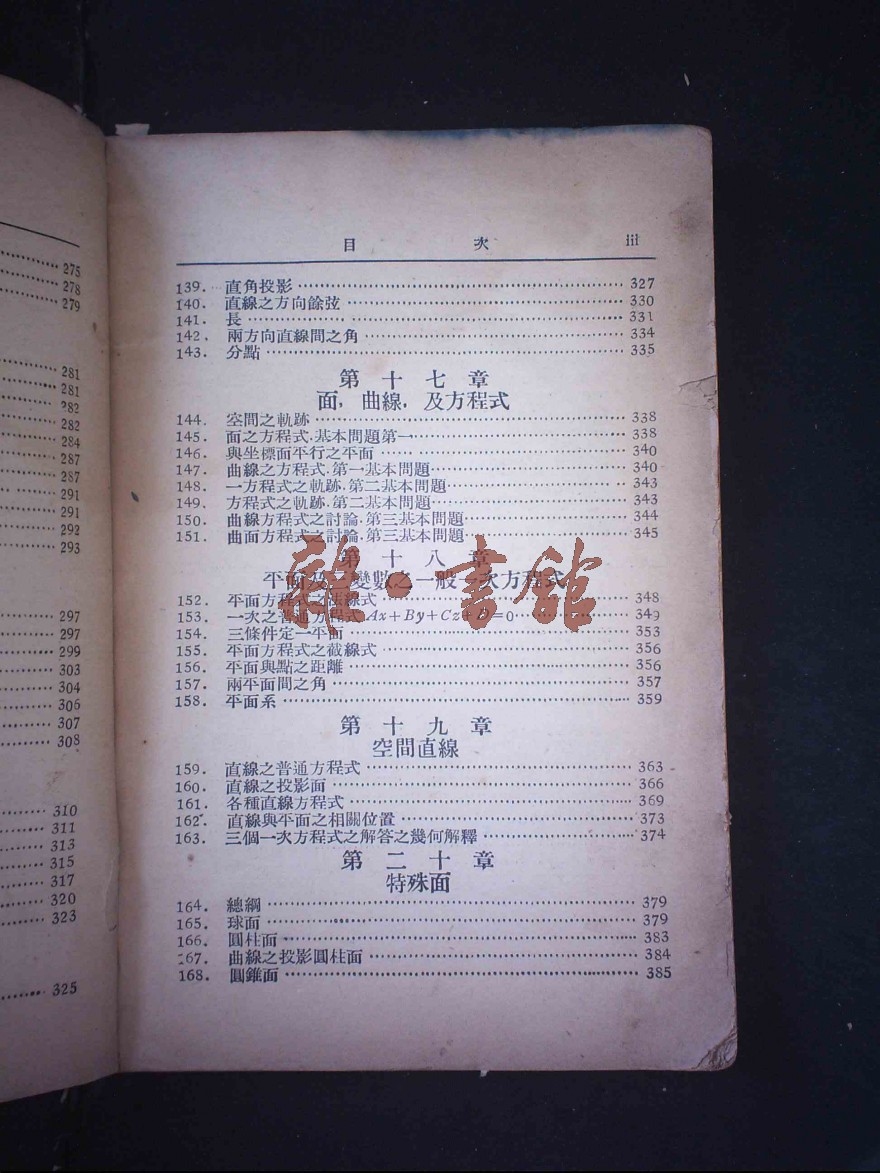 275
278
279
281
281
282
282
284
287
287
291
291
292
293
297
297
299
303
304
306
307
308
310
311
313
315
317
320
323
325
目 次 iii
139. 直角投影 327
140. 直線之方向餘弦 330
141. 長 331
142. 兩方向直線間之角 334
143. 分點 335
第十七章
面，曲線，及方程式
144. 空間之軌跡 338
145. 面之方程式.基本問題第一 338
146. 與坐標面平行之平面 340
147. 曲線之方程式.第一基本問題 340
148. 一方程式之軌跡.第二基本問題 343
149. 方程式之軌跡.第二基本問題 343
150. 曲線方程式之討論.第三基本問題 344
151. 曲面方程式之討論.第三基本問題 345
第十八章
平面及 變數之一般一次方程式
152. 平面方程式之 線式 348
153. 一次之普通方程式 Ax+By+Cz+D=0 349
154. 三條件定一平面 353
155. 平面方程式之截線式 356
156. 平面與點之距離 356
157. 兩平面間之角 357
158. 平面系 359
第十九章
空間直線
159. 直線之普通方程式 363
160. 直線之投影面 366
161. 各種直線方程式 369
162. 直線與平面之相關位置 373
163. 三個一次方程式之解答之幾何解釋 374
第二十章
特殊面
164. 總綱 379
165. 球面 379
166. 圓柱面 383
167. 曲線之投影圓柱面 384
168. 圓錐面 385
雜·書館